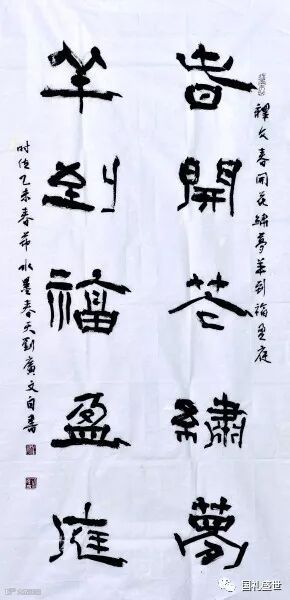 釋文春開花繡夢羊到福盈庭
春開花繡夢
羊到福盈庭
时值乙未春节 水墨春天劉廣文自書
国礼盛世